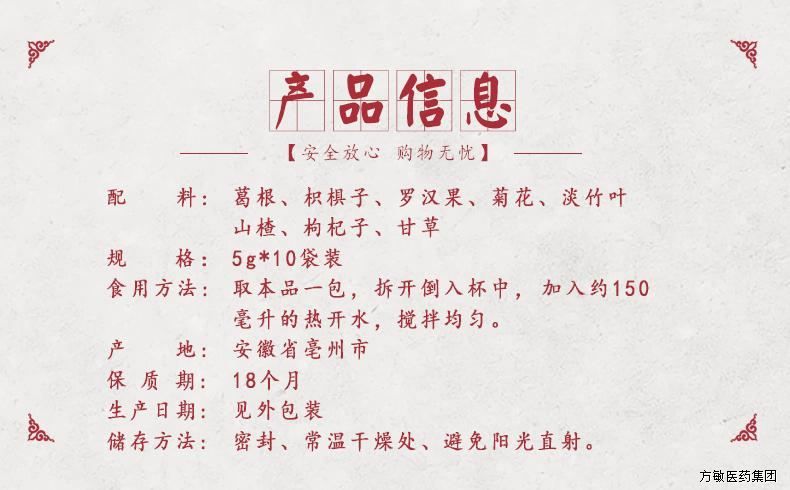 产品信息
【安全放心 购物无忧】
配 料: 葛根、枳椇子、罗汉果、菊花、淡竹叶
山楂、枸杞子、甘草
规 格: 5g*10袋装
食用方法: 取本品一包，拆开倒入杯中，加入约150
毫升的热开水，搅拌均匀。
产 地: 安徽省亳州市
保 质 期: 18个月
生产日期: 见外包装
储存方法: 密封、常温干燥处、避免阳光直射。
方敏医药集团